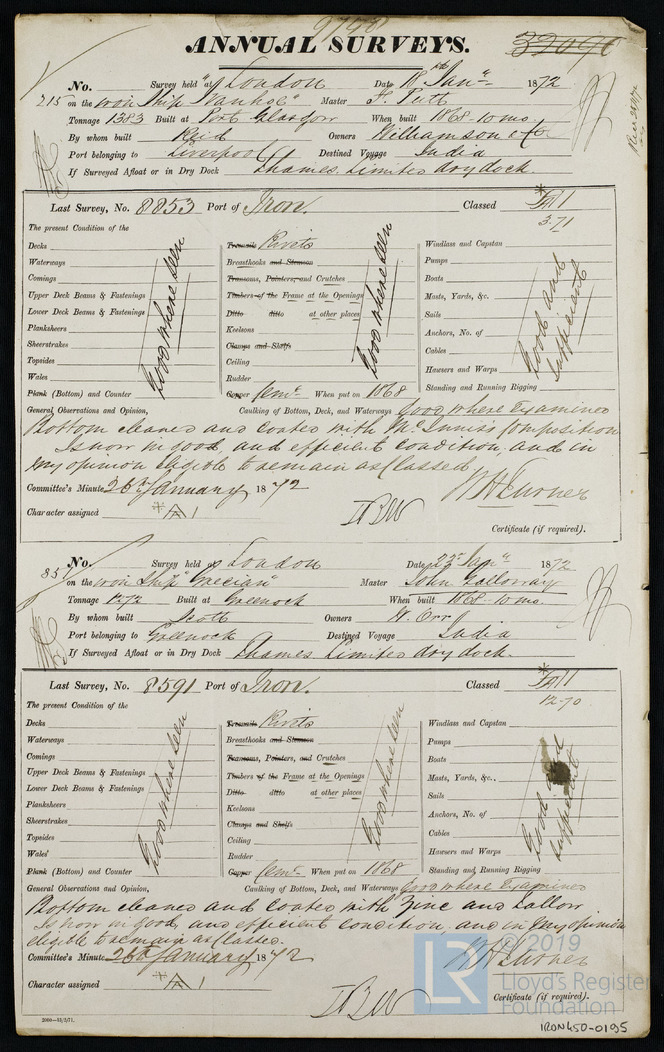 9798
ANNUAL SURVEYS. 39090
No. Survey held at London Date 18th Janry 1872
215 on the iron Ship "Ivanhoe" Master
Tonnage 1383 Built at Port Glasgow When built 1868-10 mo.
By whom built Reid Owners Williamson & Co
Port belonging to Liverpool Destined Voyage India
If Surveyed Afloat or in Dry Dock Thames Limited dry dock.
Last Survey, No. 8853 Port of Iron. Classed
3.71
The present Condition of the
Decks Treenails Rivets Windlass and Capstan
Waterways Breasthooks and Stemson Pumps
Comings Transoms, Pointers, and Crutches Boats
Upper Deck Beams & Fastenings Timbers of the Frame at the Openings Masts, Yards, &c.
Lower Deck Beams & Fastenings Ditto ditto at other places Sails
Planksheers Keelsons Anchors, No. of
Sheerstrakes Clamps and Shelfs Cables
Topsides Ceiling Hawsers and Warps
Wales Rudder Standing and Running Rigging
Good where seen
Good where seen
Good and sufficient
Plank (Bottom) and Counter Copper Cemt. When put on 1868
General Observations and Opinion, Caulking of Bottom, Deck, and Waterways Good where Examined
Bottom cleaned and coated with McInnis Composition
Is now in good and efficient condition, and in
my opinion eligible to remain as Classed.
Committee's Minute 26th January 1872 W H Turner
Character assigned A 1
Certificate (if required).
No. Survey held at London Date 23rd Janry 1872
85 on the iron Ship "Grecian" Master John Galloway
Tonnage 1272 Built at Greenock When built 1868-10 mo.
By whom built Scott Owners W. Orr
Port belonging to Greenock Destined Voyage India
If Surveyed Afloat or in Dry Dock Thames Limited dry dock.
Last Survey, No. 8591 Port of Iron. Classed
12-70
The present Condition of the
Decks Treenails Rivets Windlass and Capstan
Waterways Breasthooks and Stemson Pumps
Comings Transoms, Pointers, and Crutches Boats
Upper Deck Beams & Fastenings Timbers of the Frame at the Openings Masts, Yards, &c.
Lower Deck Beams & Fastenings Ditto ditto at other places Sails
Planksheers Keelsons Anchors, No. of
Sheerstrakes Clamps and Shelfs Cables
Topsides Ceiling Hawsers and Warps
Wales Rudder Standing and Running Rigging
Good where seen
Good where seen
Good and sufficient
Plank (Bottom) and Counter Copper Cemt. When put on 1868
General Observations and Opinion, Caulking of Bottom, Deck, and Waterways Good where Examined
Bottom cleaned and coated with Zinc and Tallow
Is now in good and efficient condition, and in my opinion
eligible to remain as Classed.
Committee's Minute 26th January 1872 W H Turner
Character assigned A 1
Certificate (if required).
LR © 2019
Lloyd's Register
Foundation
IRON450-0195